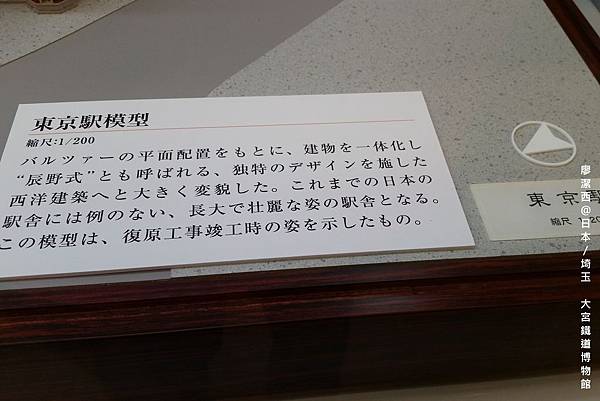 東京駅模型
縮尺:1/200
バルツァーの平面配置をもとに、建物を一体化し
“辰野式”とも呼ばれる、独特のデザインを施した
西洋建築へと大きく変貌した。これまでの日本の
駅舎には例のない、長大で壮麗な姿の駅舎となる。
この模型は、復原工事竣工時の姿を示したもの。
東京駅
縮尺 1/20
廖潔西@日本/埼玉 大宮鐵道博物館